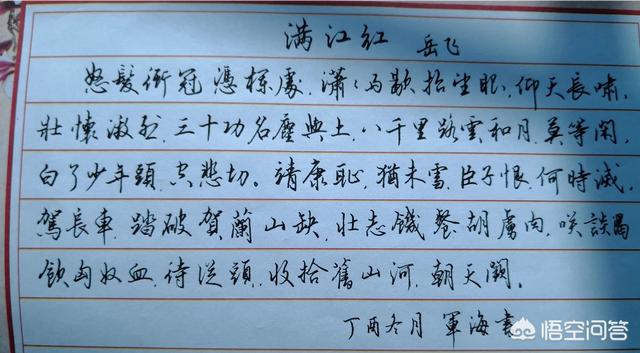 满江红 岳飞
怒髮衝冠 憑欄處，瀟々雨歇抬望眼，仰天長嘯，
壯懷激烈，三十功名塵與土，八千里路雲和月，莫等閑，
白了少年頭，空悲切。靖康恥，猶未雪，臣子恨，何時滅，
駕長車，踏破賀蘭山缺，壯志饑餐胡虜肉，笑談渴
飲匈奴血，待從頭，收拾舊山河，朝天闕。
丁酉冬月 軍海書
悟空问答